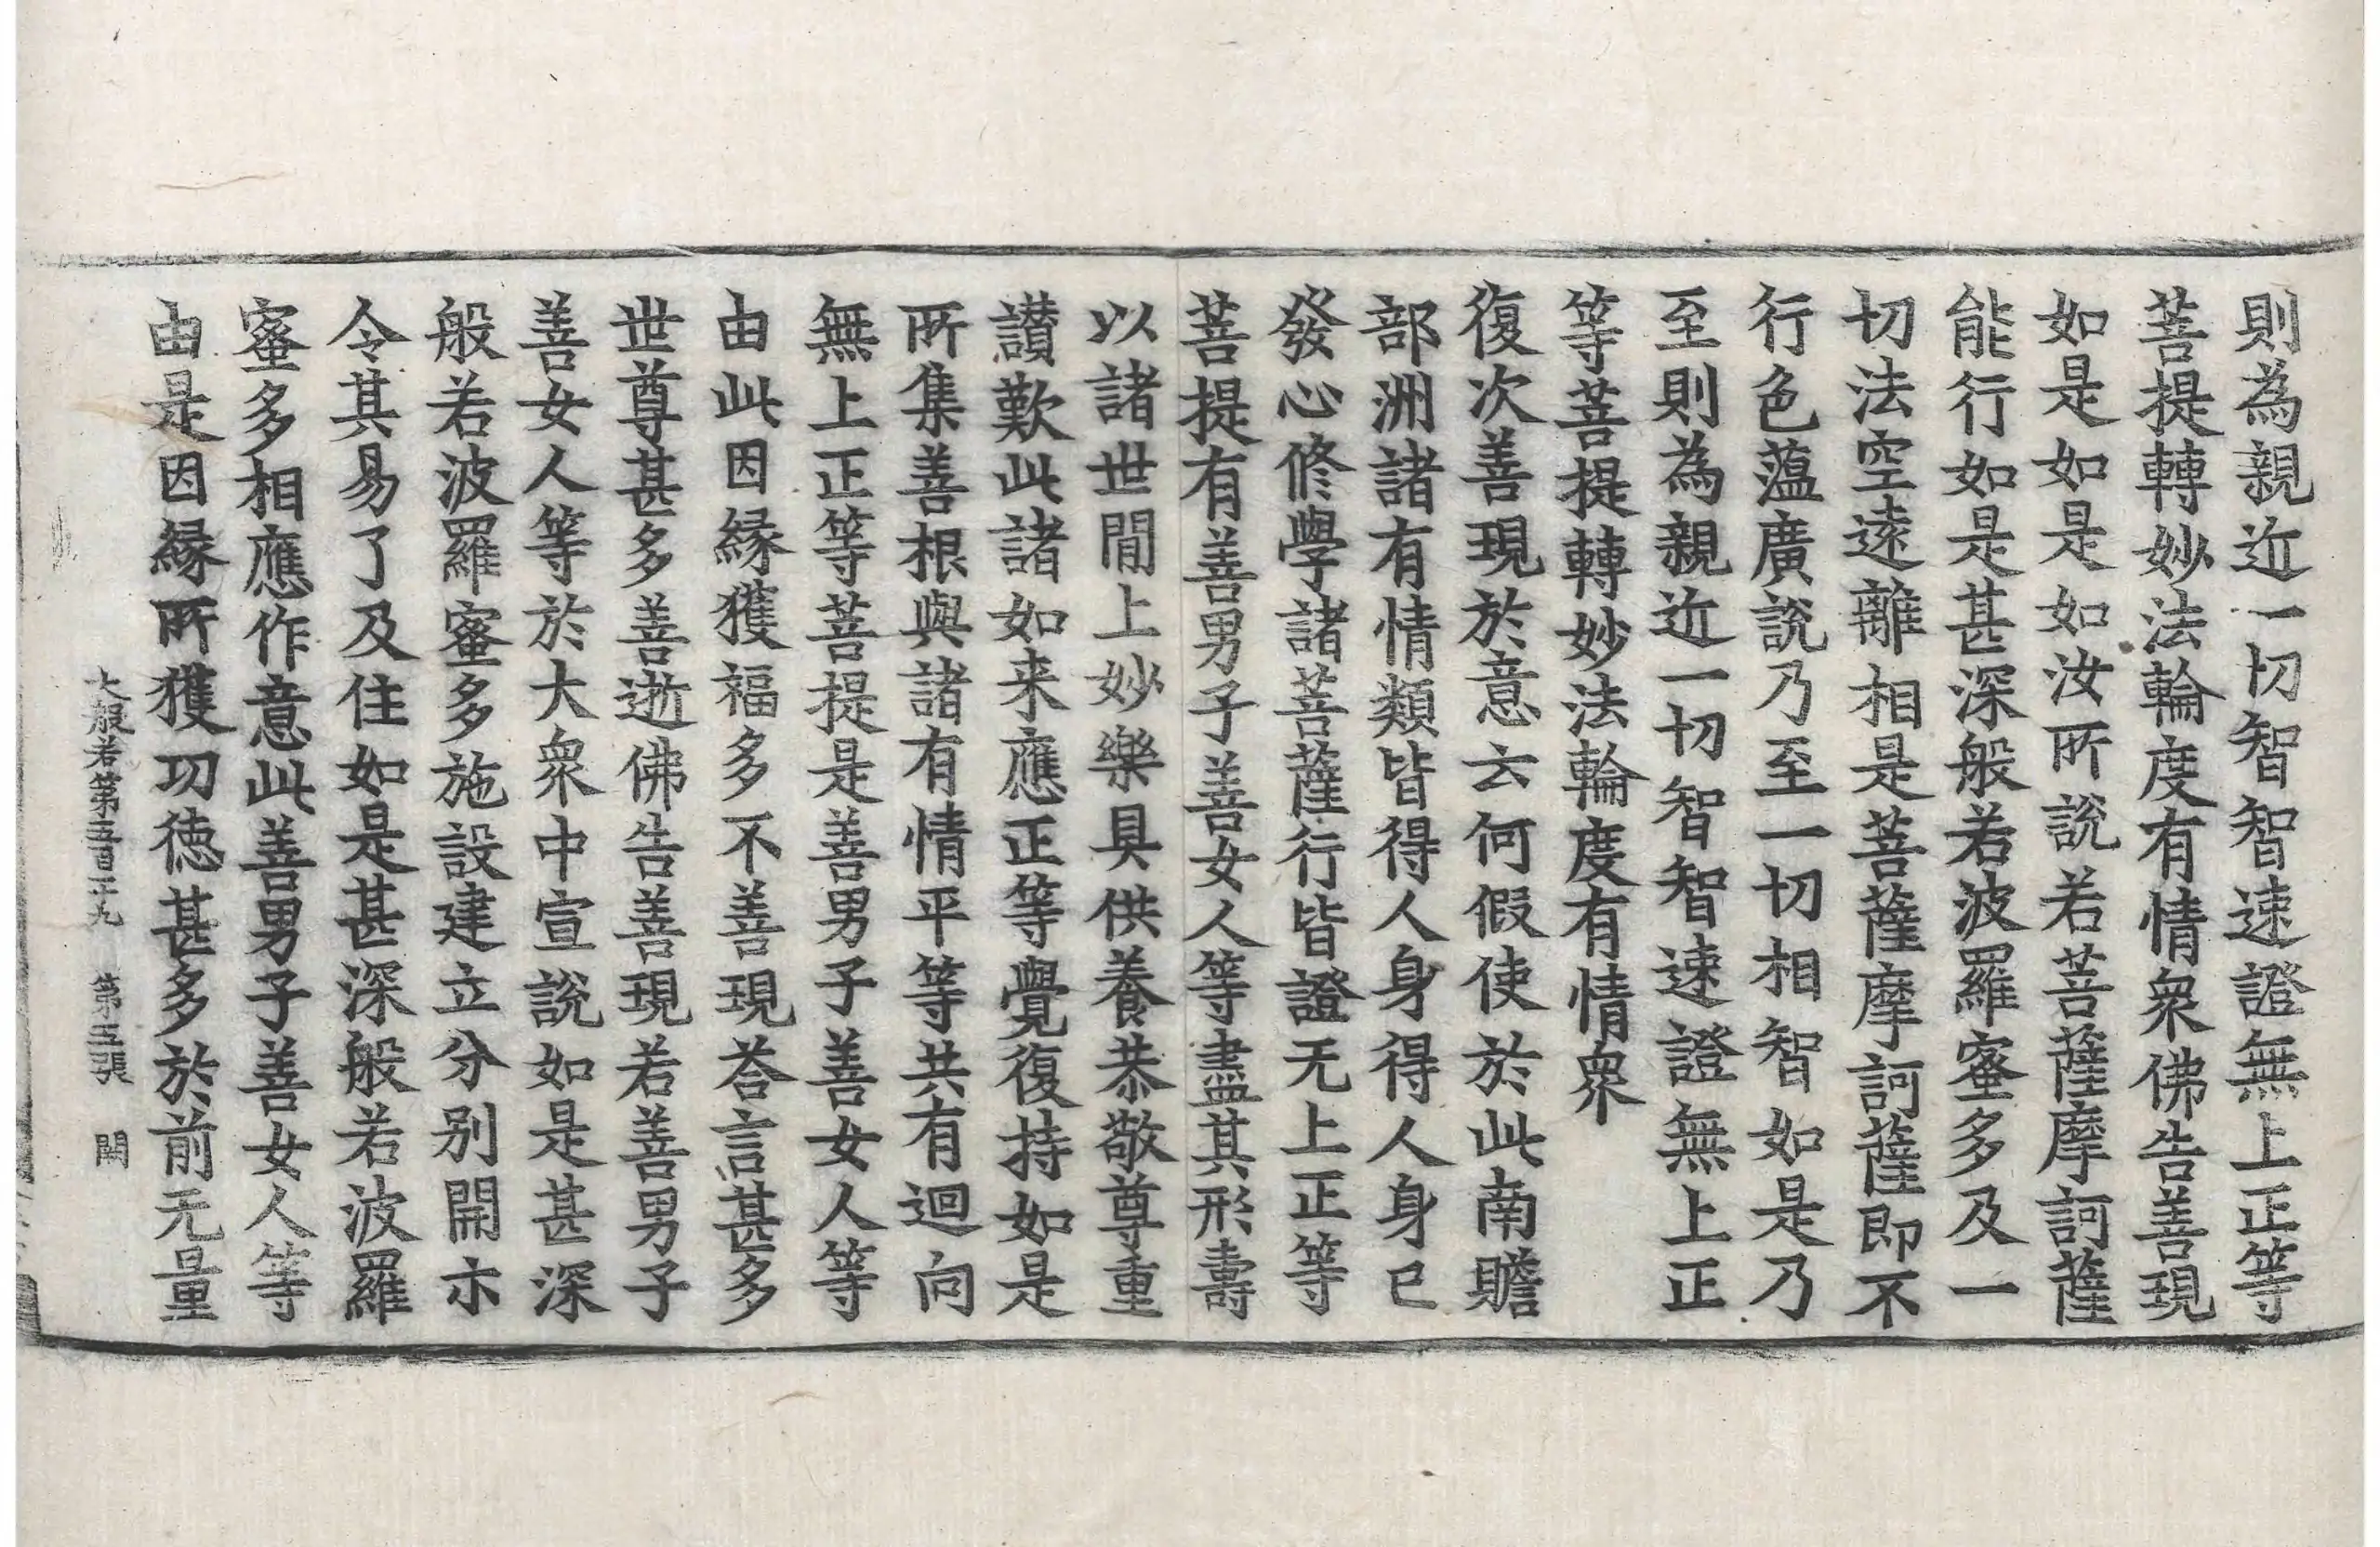 則為親近一切智智速證無上正等
菩提轉妙法輪度有情衆佛告善現
如是如是如汝所說若菩薩摩訶薩
能行如是甚深般若波羅蜜多及一
切法空遠離相是菩薩摩訶薩即不
行色蘊廣說乃至一切相智如是乃
至則為親近一切智智速證無上正
等菩提轉妙法輪度有情衆
復次善現於意云何假使於此南贍
部洲諸有情類皆得人身得人身已
發心修學諸菩薩行皆證无上正等
菩提有善男子善女人等盡其形壽
以諸世間上妙樂具供養恭敬尊重
讃歎此諸如来應正等覺復持如是
所集善根與諸有情平等共有迴向
無上正等菩提是善男子善女人等
由此因縁獲福多不善現荅言甚多
世尊甚多善逝佛告善現若善男子
善女人等於大衆中宣說如是甚深
般若波羅蜜多施設建立分别開示
令其易了及住如是甚深般若波羅
蜜多相應作意此善男子善女人等
由是因縁所獲功徳甚多於前无量
大般若第五百二十九 第五張 閏